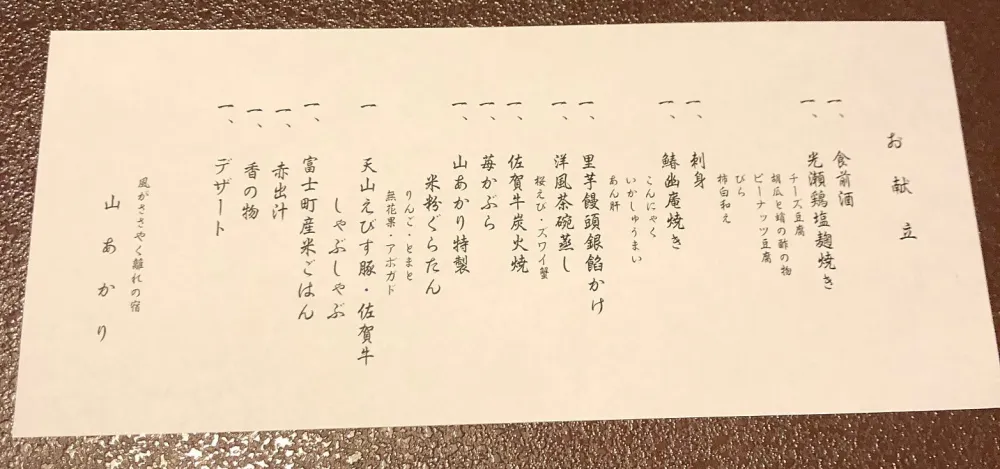 お献立
一、食前酒
一、光瀬鶏塩麹焼き
チーズ豆腐
胡瓜と蛸の酢の物
ピーナッツ豆腐
びら
柿白和え
一、刺身
一、鰆幽庵焼き
こんにゃく
いかしゅうまい
あん肝
一、里芋饅頭銀餡かけ
一、洋風茶碗蒸し
桜えび・ズワイ蟹
一、佐賀牛炭火焼
一、苺かぶら
一、山あかり特製
米粉ぐらたん
りんご・とまと
無花果・アボガド
一 天山えびす豚・佐賀牛
しゃぶしゃぶ
一、富士町産米ごはん
一、赤出汁
一、香の物
一、デザート
風がささやく離れの宿
山あかり